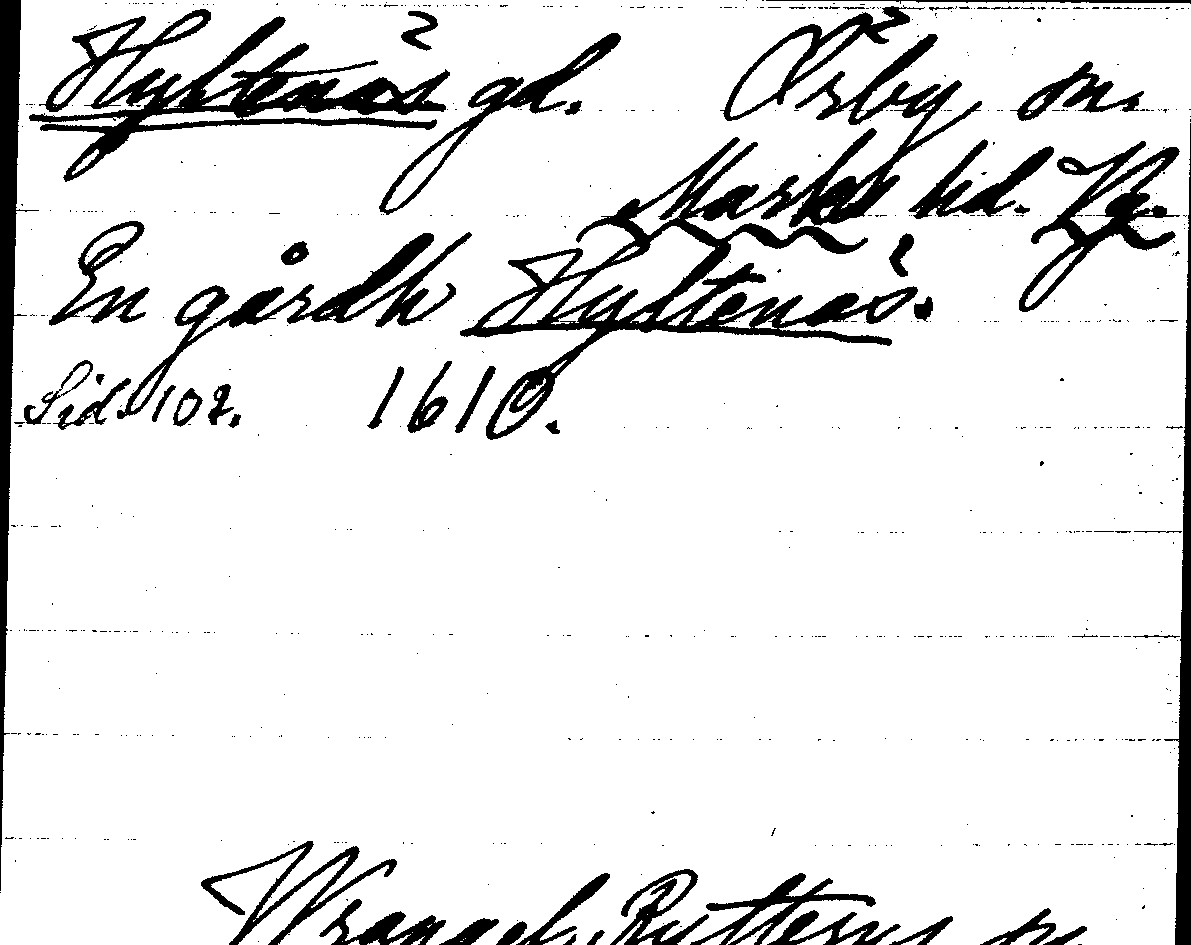 Hyltenäs gd. Örsby sn.
Marks hd. Vg.
En gårdh Hyltenäs.
Sid. 102. 1610.
Wrangel, Rytterns